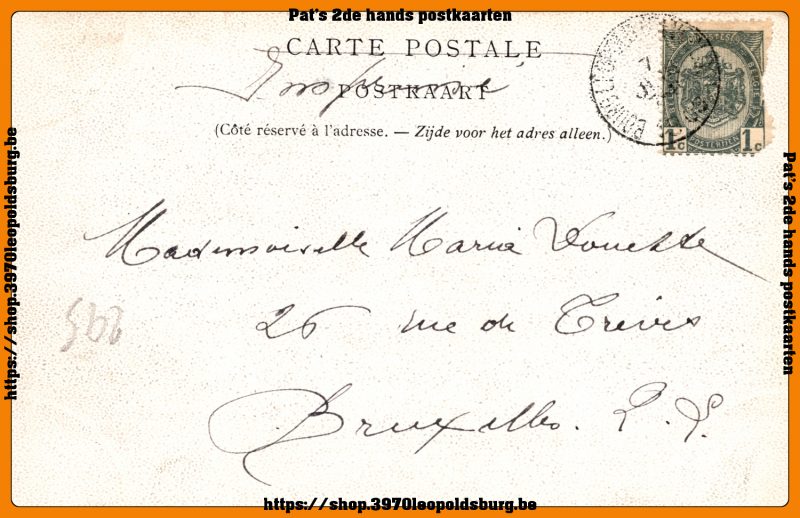 Pat's 2de hands postkaarten
CARTE POSTALE
Imprimé
POSTKAART
(Côté réservé à l'adresse. — Zijde voor het adres alleen.)
1c 1c
Mademoiselle Maria
26 rue de Trèves
Bruxelles.
https://shop.3970leopoldsburg.be
Pat's 2de hands postkaarten
https://shop.3970leopoldsburg.be